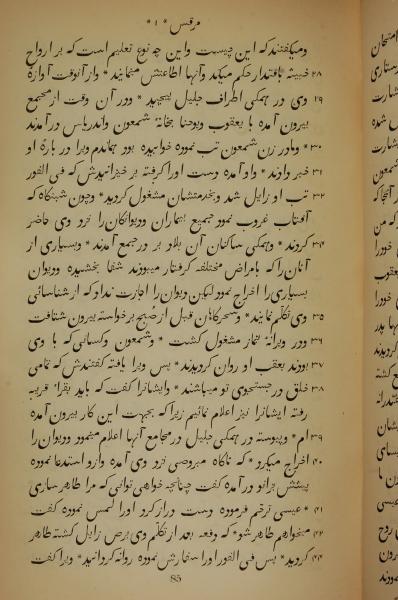 مرقس * ۱ *
و میکفتند که این چیست و این چه نوع تعلیم است که بر ارواح
۲۸ خبیثه باقتدار حکم میکند و آنها اطاعتش منمایند * و از آنوقت آوازهٔ
۲۹ وی در همکی اطراف جلیل پیچید * و در آن وقت از مجمع
بیرون آمده با یعقوب و یوحنا بخانهٔ شمعون و اندریاس در آمدند
۳۰ * و مادر زن شمعون تب نموده خوابیده بود هماندم ویرا در بارهٔ او
۳۱ خبر دادند * و او آمده دست اورا کرفته بر خیزانیدش که فی الفور
۳۲ تب او زایل شد و بخدمتشان مشغول کردید * و چون شبنکاه که
آفتاب غروب نمود جمیع بیماران و دیوانکان را نزد وی حاضر
۳۴ کردند * و همکی ساکنان آن بلاد بر در جمع آمدند * و بسیاری از
آنان را که بامراض مختلفه کرفتار میبودند شفا بخشیده و دیوان
بسیاری را اخراج نمود لیکن دیوان را اجازت نداد که از شناسائی
۳۵ وی تکلّم نمایند * و سحرکاهان قبل از صُبح برخواسته بیرون شتافت
۳۶ و در ویرانهٔ بنماز مشغول کشت * و شمعون و کسانی که با وی
۳۷ بودند بعقب او روان کردیدند * پس ویرا یافته کفتندش که تمامی
۳۸ خلق در جستجوی تو میباشند * و ایشانرا کفت که باید بقراء قریبه
رفته ایشانرا نیز اعلام نمائیم زیرا که بجهت این کار بیرون آمده
۳۹ ام * و پیوسته در همکی جلیل در مجامع آنها اعلام مینمود و دیوان را
۴۰ اخراج میکرد * که ناکاه مبروصی نزد وی آمده و ازو استدعا نموده
پیشش بزانو در آمده کفت چنانچه خواهی توانی که مرا طاهر سازی
۴۱ * عیسی ترحّم فرموده دست دراز کرد و اورا لمس نموده کفت
۴۲ میخواهم طاهر شو * که وقعه بعد از تکلّم وی برص زایل کشته طاهر
۴۳ کردید * پس فی الفور اورا سفارش نموده روانه کردانید * و یرا کفت
85